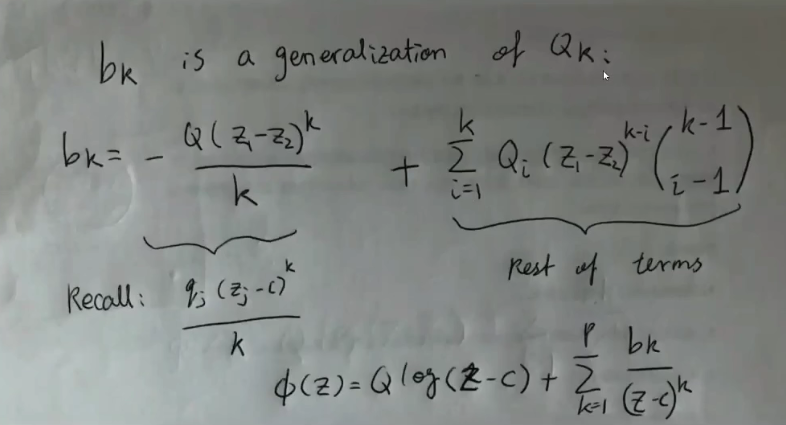 bk is a generalization of Qk:
bk = - Q(z₁-z₂)^k / k + Σ_{i=1}^{k} Qᵢ (z₁-z₂)^{k-i} (k-1 i-1)
Recall: qⱼ (zⱼ-c)^k / k
Rest of terms
φ(z) = Q log(z-c) + Σ_{k=1}^{p} bk / (z-c)^k